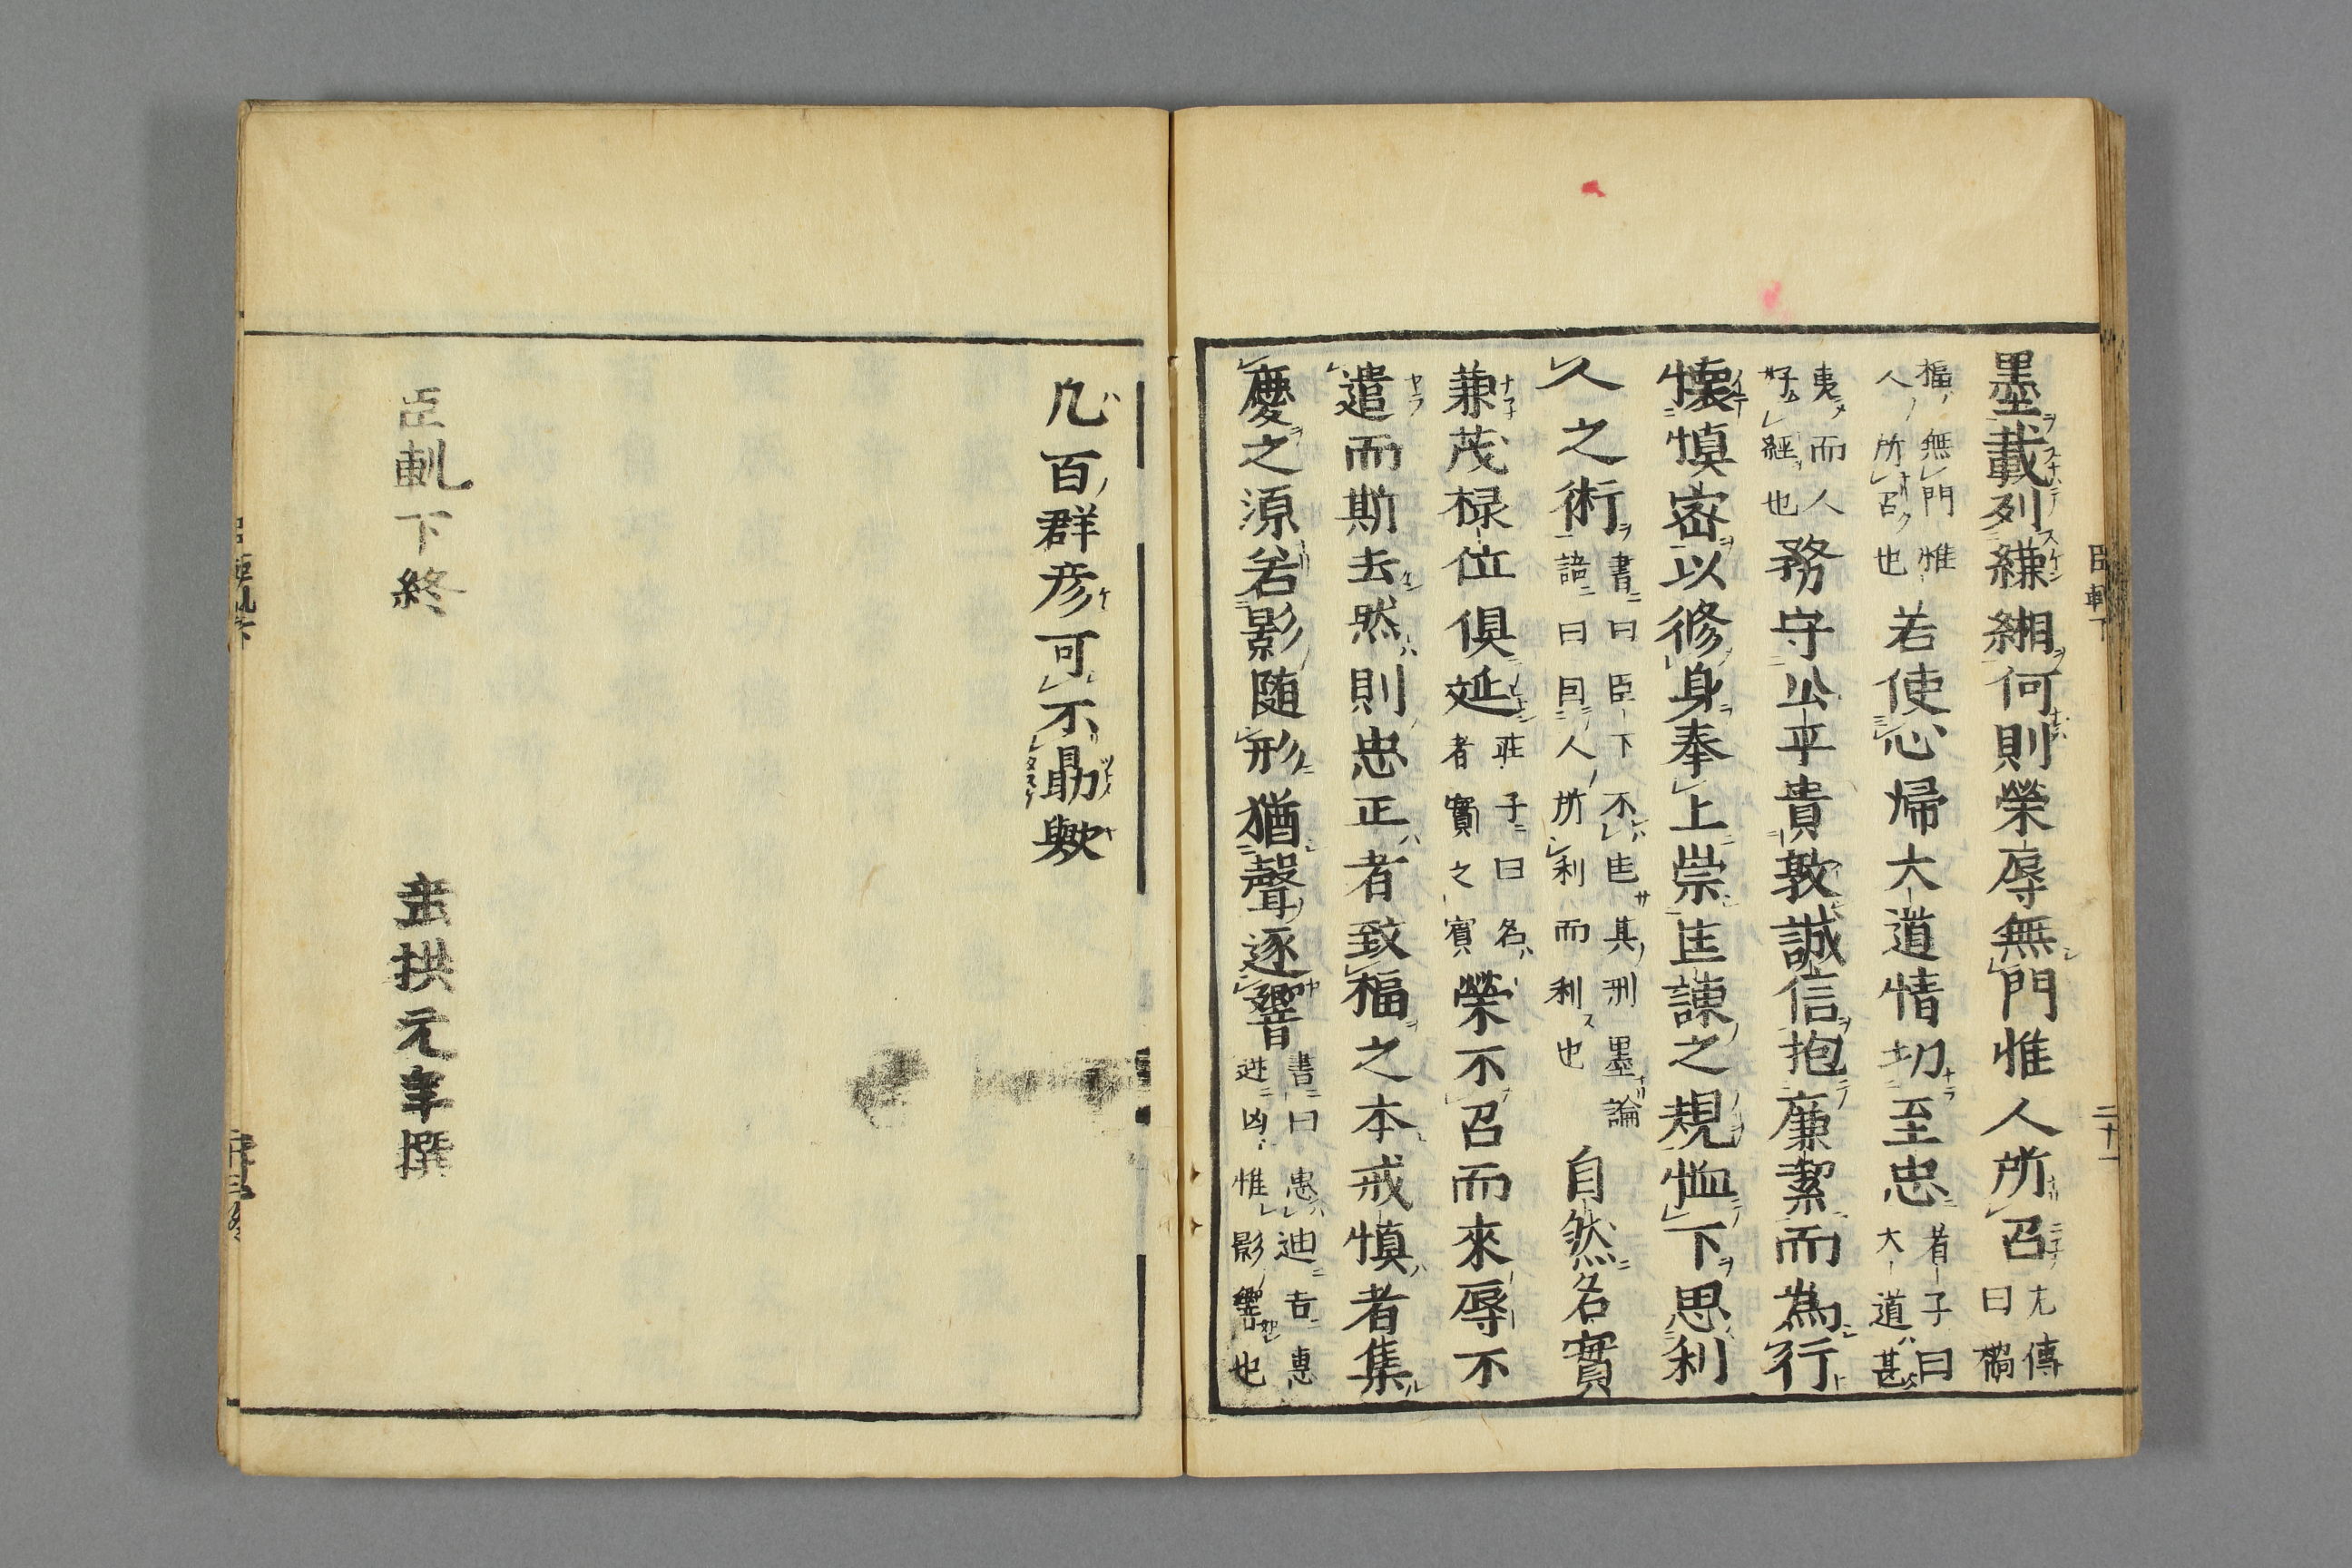 墨載列縑緗何則榮辱無門惟人所召左傳曰禍
福無門惟人所召也若使心歸大道情切至忠老子曰大道甚
夷而人好徑也務守公平貴敦誠信抱廉潔而為行
懷慎密以修身奉上崇匡諫之規恤下思利
久之術書曰臣下不匡其刑墨論語曰因人所利而利也自然名實
兼茂祿位俱延莊子曰名者實之賓榮不召而來辱不
遣而斯去然則忠正者致福之本戒慎者集
慶之源若影隨形猶聲逐響書曰惠迪吉惠逆凶惟影響也
凡百群彥可不勗歟
臣軌下終
垂拱元年撰
臣軌下
二十一